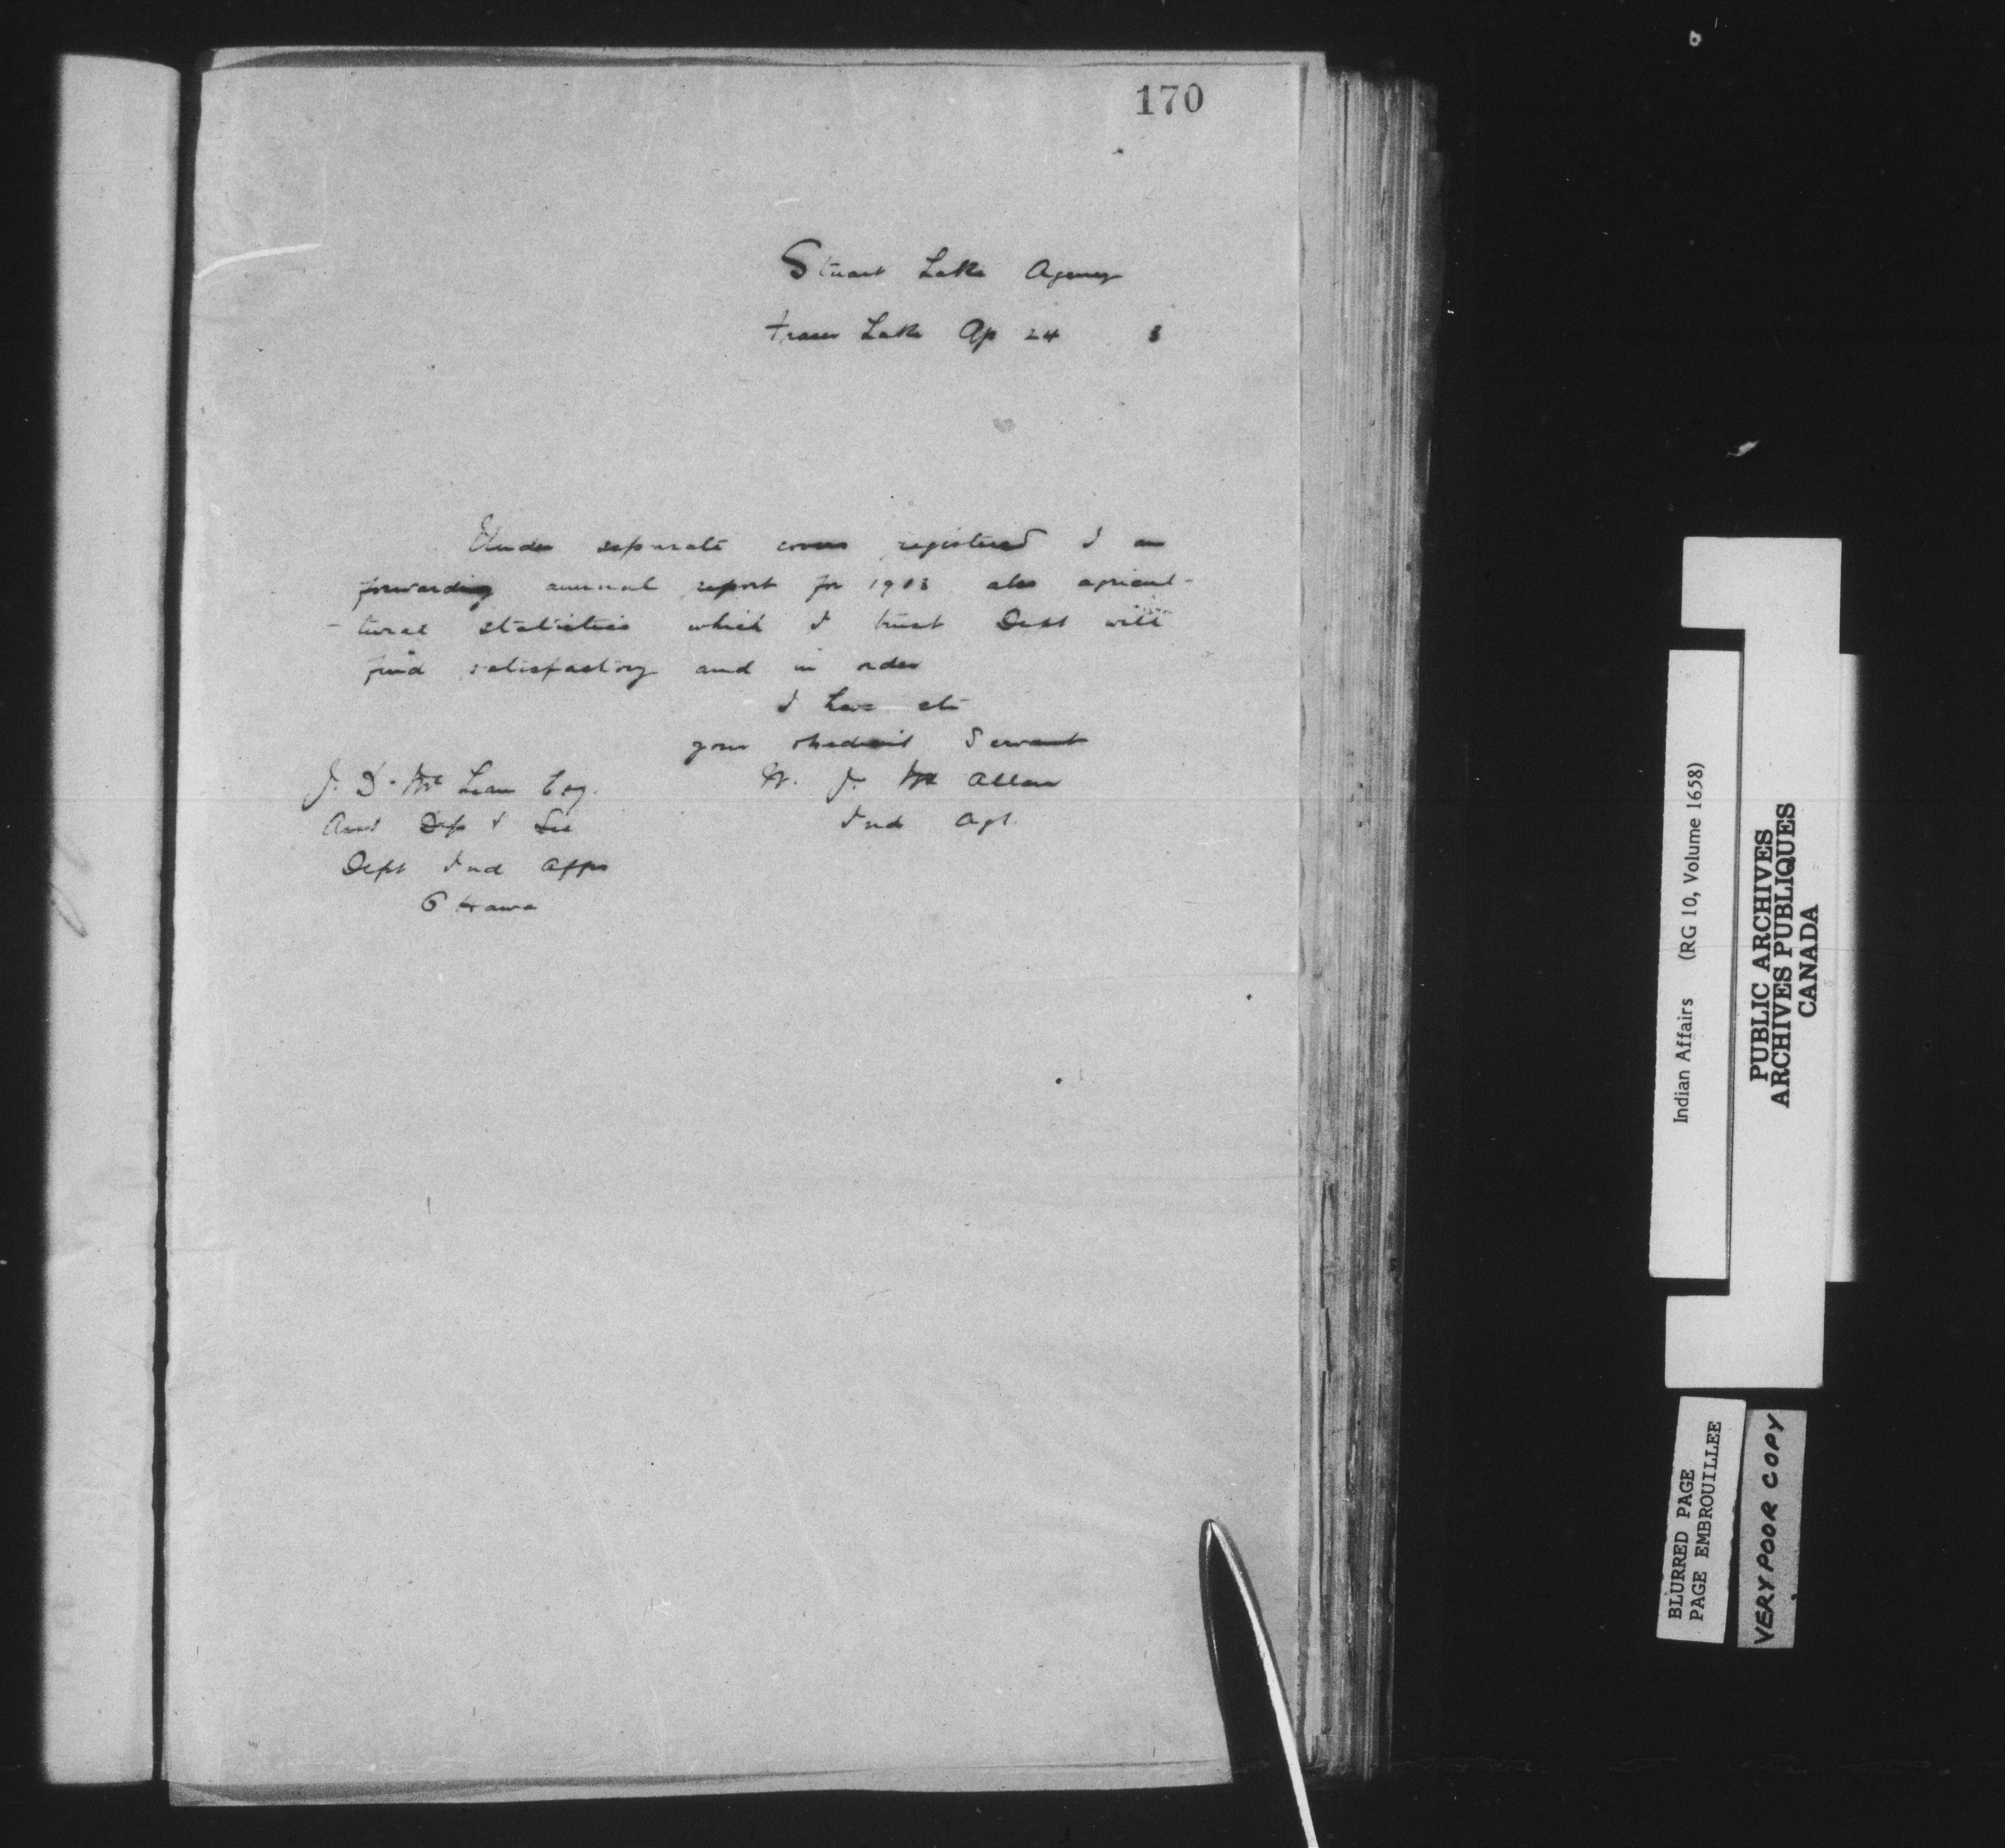 170
Stuart Lake Agency
Fraser Lake Ap 24 8
Under separate cover registered I am
forwarding annual report for 1908 also agricul-
-tural statistics which I trust Dept will
find satisfactory and in order
I have etc
your obedient Servant
W. J. Mc Allan
Ind Agt.
J. D. Mc Lean Esq.
Asst Dep & Sec
Dept Ind Affrs
Ottawa
Indian Affairs (RG 10, Volume 1658)
PUBLIC ARCHIVES
ARCHIVES PUBLIQUES
CANADA
BLURRED PAGE
PAGE EMBROUILLEE
VERY POOR COPY